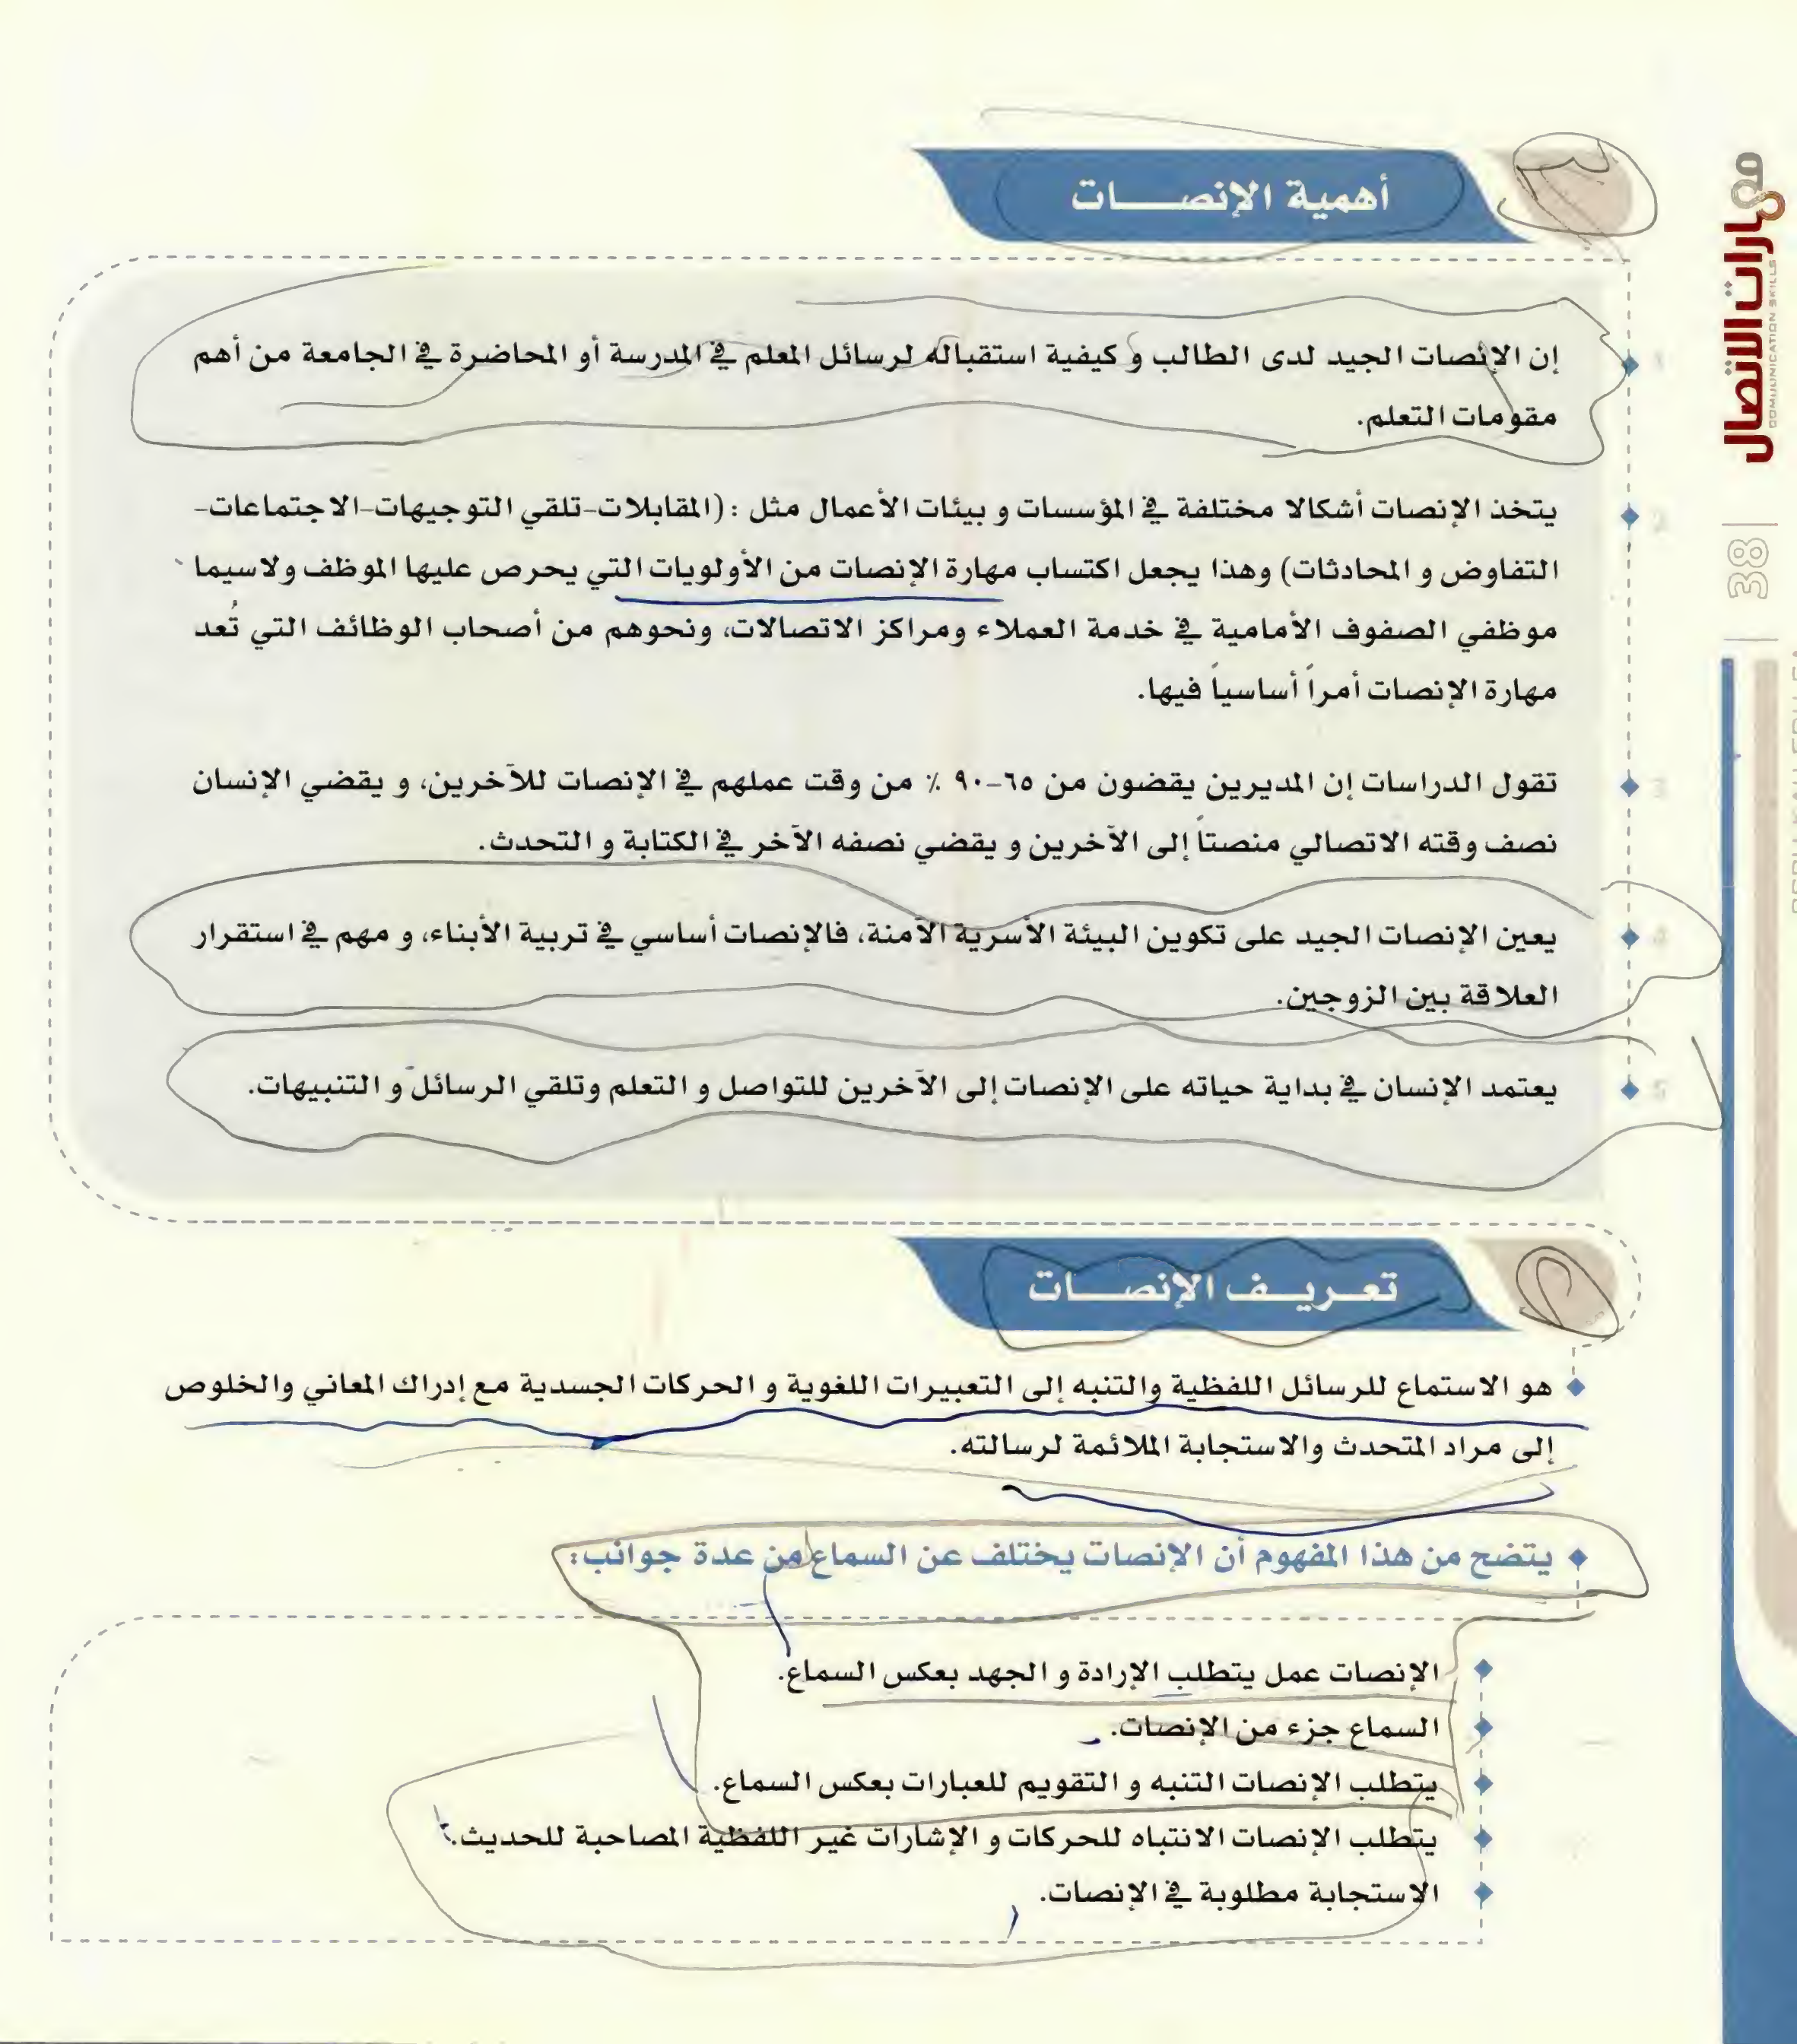 أهمية الإنصات
إن الإنصات الجيد لدى الطالب و كيفية استقباله لرسائل المعلم في المدرسة أو المحاضرة في الجامعة من أهم
مقومات التعلم.
يتخذ الإنصات أشكالا مختلفة في المؤسسات و بيئات الأعمال مثل : (المقابلات-تلقي التوجيهات-الاجتماعات-
التفاوض و المحادثات) وهذا يجعل اكتساب مهارة الإنصات من الأولويات التي يحرص عليها الموظف ولاسيما
موظفي الصفوف الأمامية في خدمة العملاء ومراكز الاتصالات، ونحوهم من أصحاب الوظائف التي تُعد
مهارة الإنصات أمراً أساسياً فيها.
تقول الدراسات إن المديرين يقضون من ٦٥-٩٠ ٪ من وقت عملهم في الإنصات للآخرين، و يقضي الإنسان
نصف وقته الاتصالي منصتاً إلى الآخرين و يقضي نصفه الآخر في الكتابة و التحدث.
يعين الإنصات الجيد على تكوين البيئة الأسرية الآمنة، فالإنصات أساسي في تربية الأبناء، و مهم في استقرار
العلاقة بين الزوجين.
يعتمد الإنسان في بداية حياته على الإنصات إلى الآخرين للتواصل و التعلم وتلقي الرسائل و التنبيهات.
تعريف الإنصات
هو الاستماع للرسائل اللفظية والتنبه إلى التعبيرات اللغوية و الحركات الجسدية مع إدراك المعاني والخلوص
إلى مراد المتحدث والاستجابة الملائمة لرسالته.
يتضح من هذا المفهوم أن الإنصات يختلف عن السماع من عدة جوانب:
الإنصات عمل يتطلب الإرادة و الجهد بعكس السماع.
السماع جزء من الإنصات.
يتطلب الإنصات التنبه و التقويم للعبارات بعكس السماع.
يتطلب الإنصات الانتباه للحركات و الإشارات غير اللفظية المصاحبة للحديث.
الاستجابة مطلوبة في الإنصات.
مهارات الاتصال
COMMUNICATION SKILLS
38